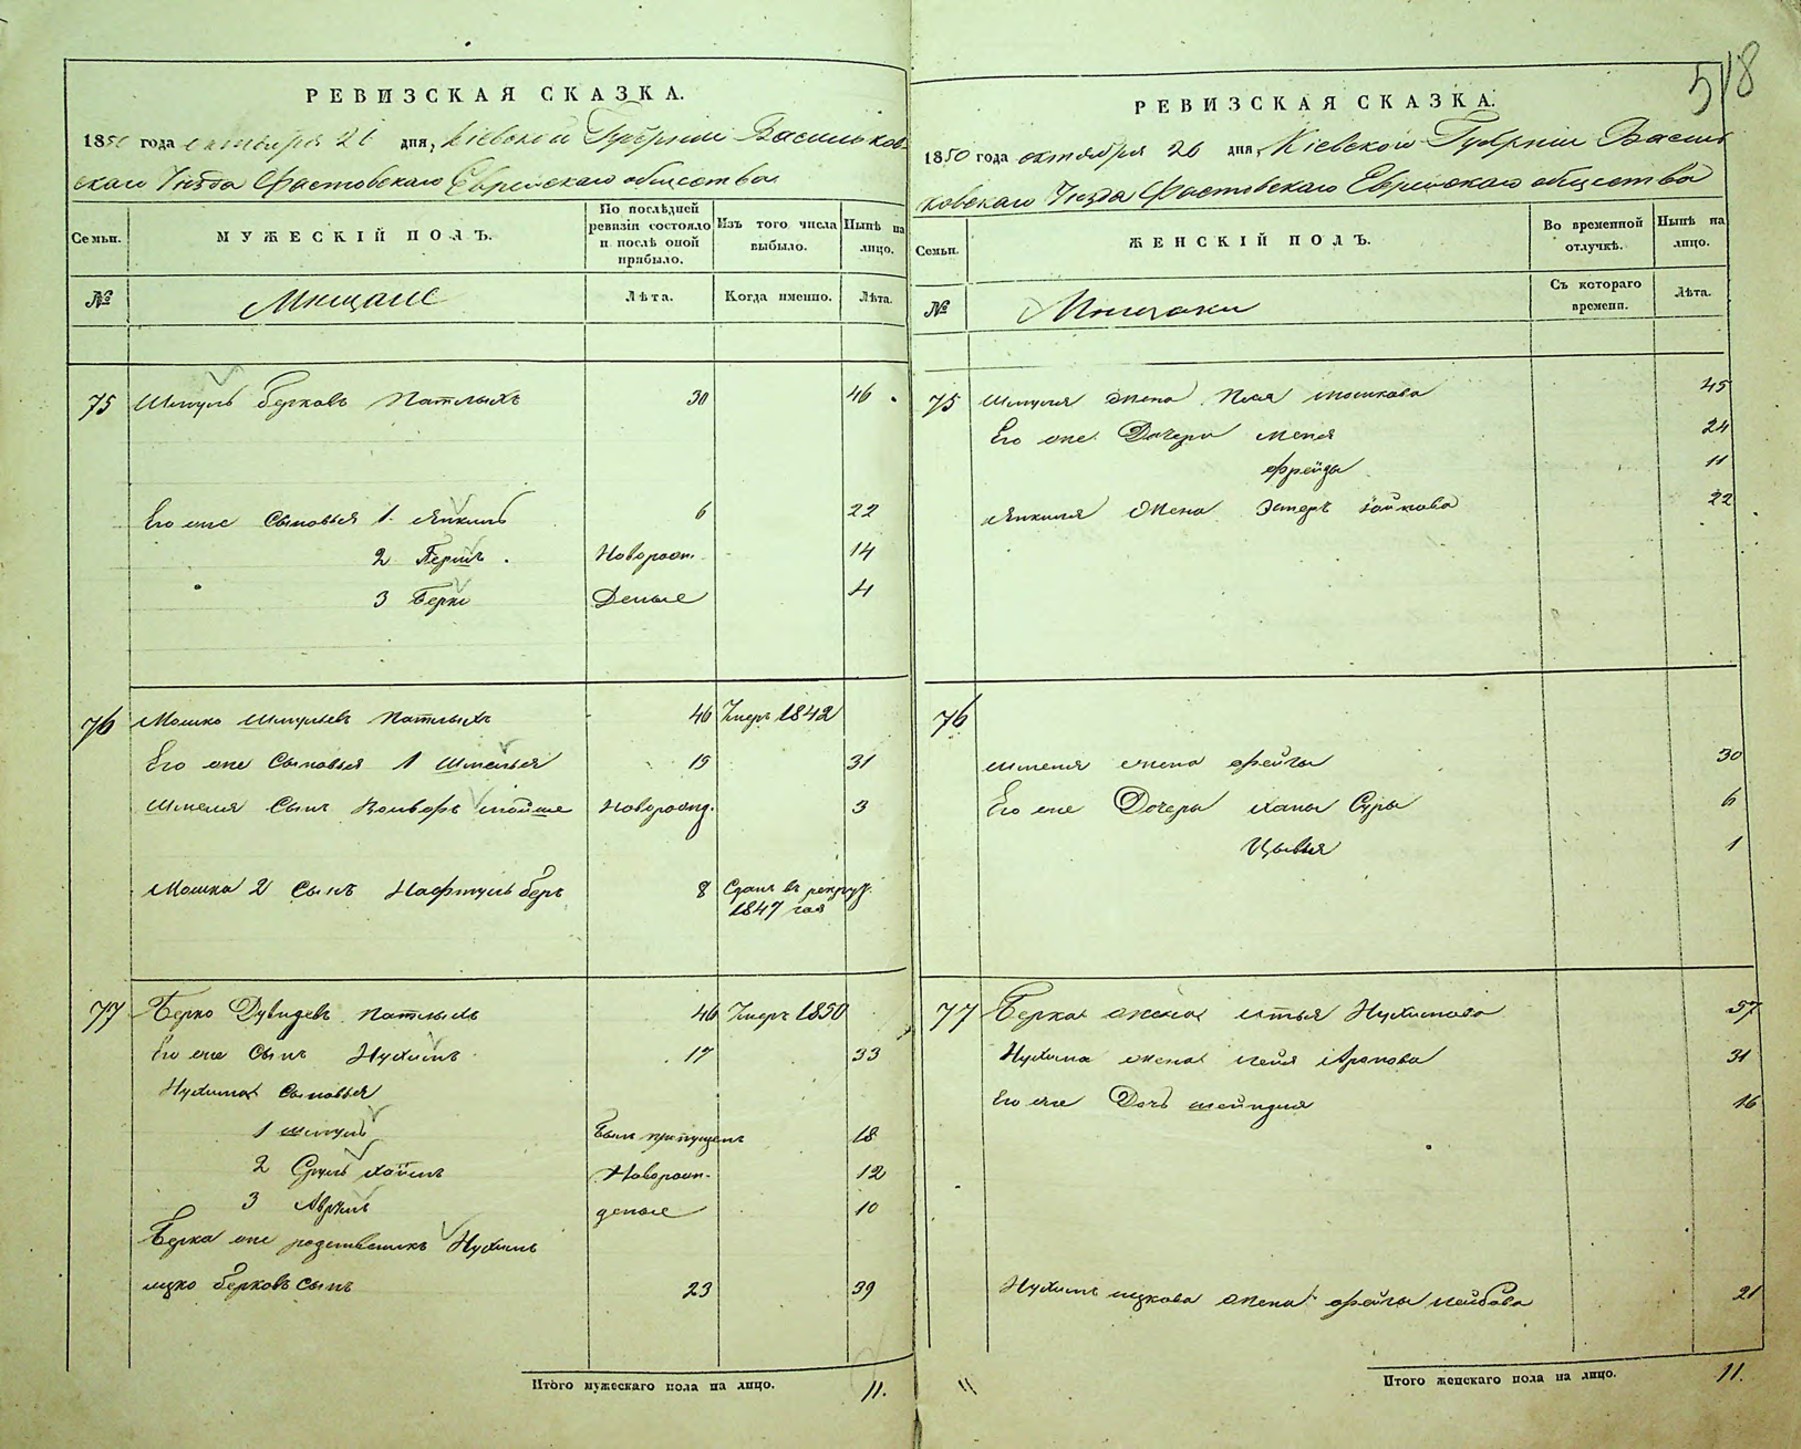 РЕВИЗСКАЯ СКАЗКА.
1850 года октября 26 дня, Кіевской Губерніи Васильков-
скаго Уѣзда Фастовскаго Еврейскаго общества
Семьи.
МУЖЕСКІЙ ПОЛЪ.
По послѣдней ревизіи состояло и послѣ оной прибыло.
Изъ того числа выбыло.
Нынѣ на лицо.
№
Мещане
Лѣта.
Когда именно.
Лѣта.
75 Шмуль Берковъ Патлыхъ 30 46
Его же Сыновья 1. Янкель 6 22
2 Гершъ Новорож. 14
3 Берко Деные 4
76 Мошко Шмулевъ Патлыхъ 46 Умеръ 1842
Его же Сыновья 1 Шмелья 15 31
Шмеля Сынъ Вольфъ Мойше Новорожд. 3
Мошка 2 Сынъ Нафтуль Беръ 8 Сданъ въ рекрут. 1847 год
77 Берко Дувидевъ Патлыхъ 46 Умеръ 1850
Его же Сынъ Нухимъ 17 33
Нухима Сыновья
1 Шмуль Былъ пропущенъ 18
2 Сруль Хаимъ Новорож. 12
3 Аврумъ деные 10
Берка же родственикъ Нухимъ
Ицко Берковъ Сынъ 23 39
Итого мужескаго пола на лицо. 11.
518
РЕВИЗСКАЯ СКАЗКА.
1850 года октября 26 дня, Кіевской Губрніи Василь
ковскаго Уѣзда Фастовскаго Еврейскаго общества
Семьи.
ЖЕНСКІЙ ПОЛЪ.
Во временной отлучкѣ.
Нынѣ на лицо.
№
Мещанки
Съ котораго времени.
Лѣта.
75 Шмуля Жена Мошкова 45
Его же Дочери 24
Фрейда 11
Янкеля Жена Эстеръ 22
76
Шмеля жена Фейга 30
Его же Дочери Хана Сура 6
Цывья 1
77 Берка жена Итья Нухимова 57
Нухима жена Лея Аронова 31
Его же Дочь Шейндля 16
Нухимъ Ицкова жена Фейга Лейбова 21
11 Итого женскаго пола на лицо. 11.